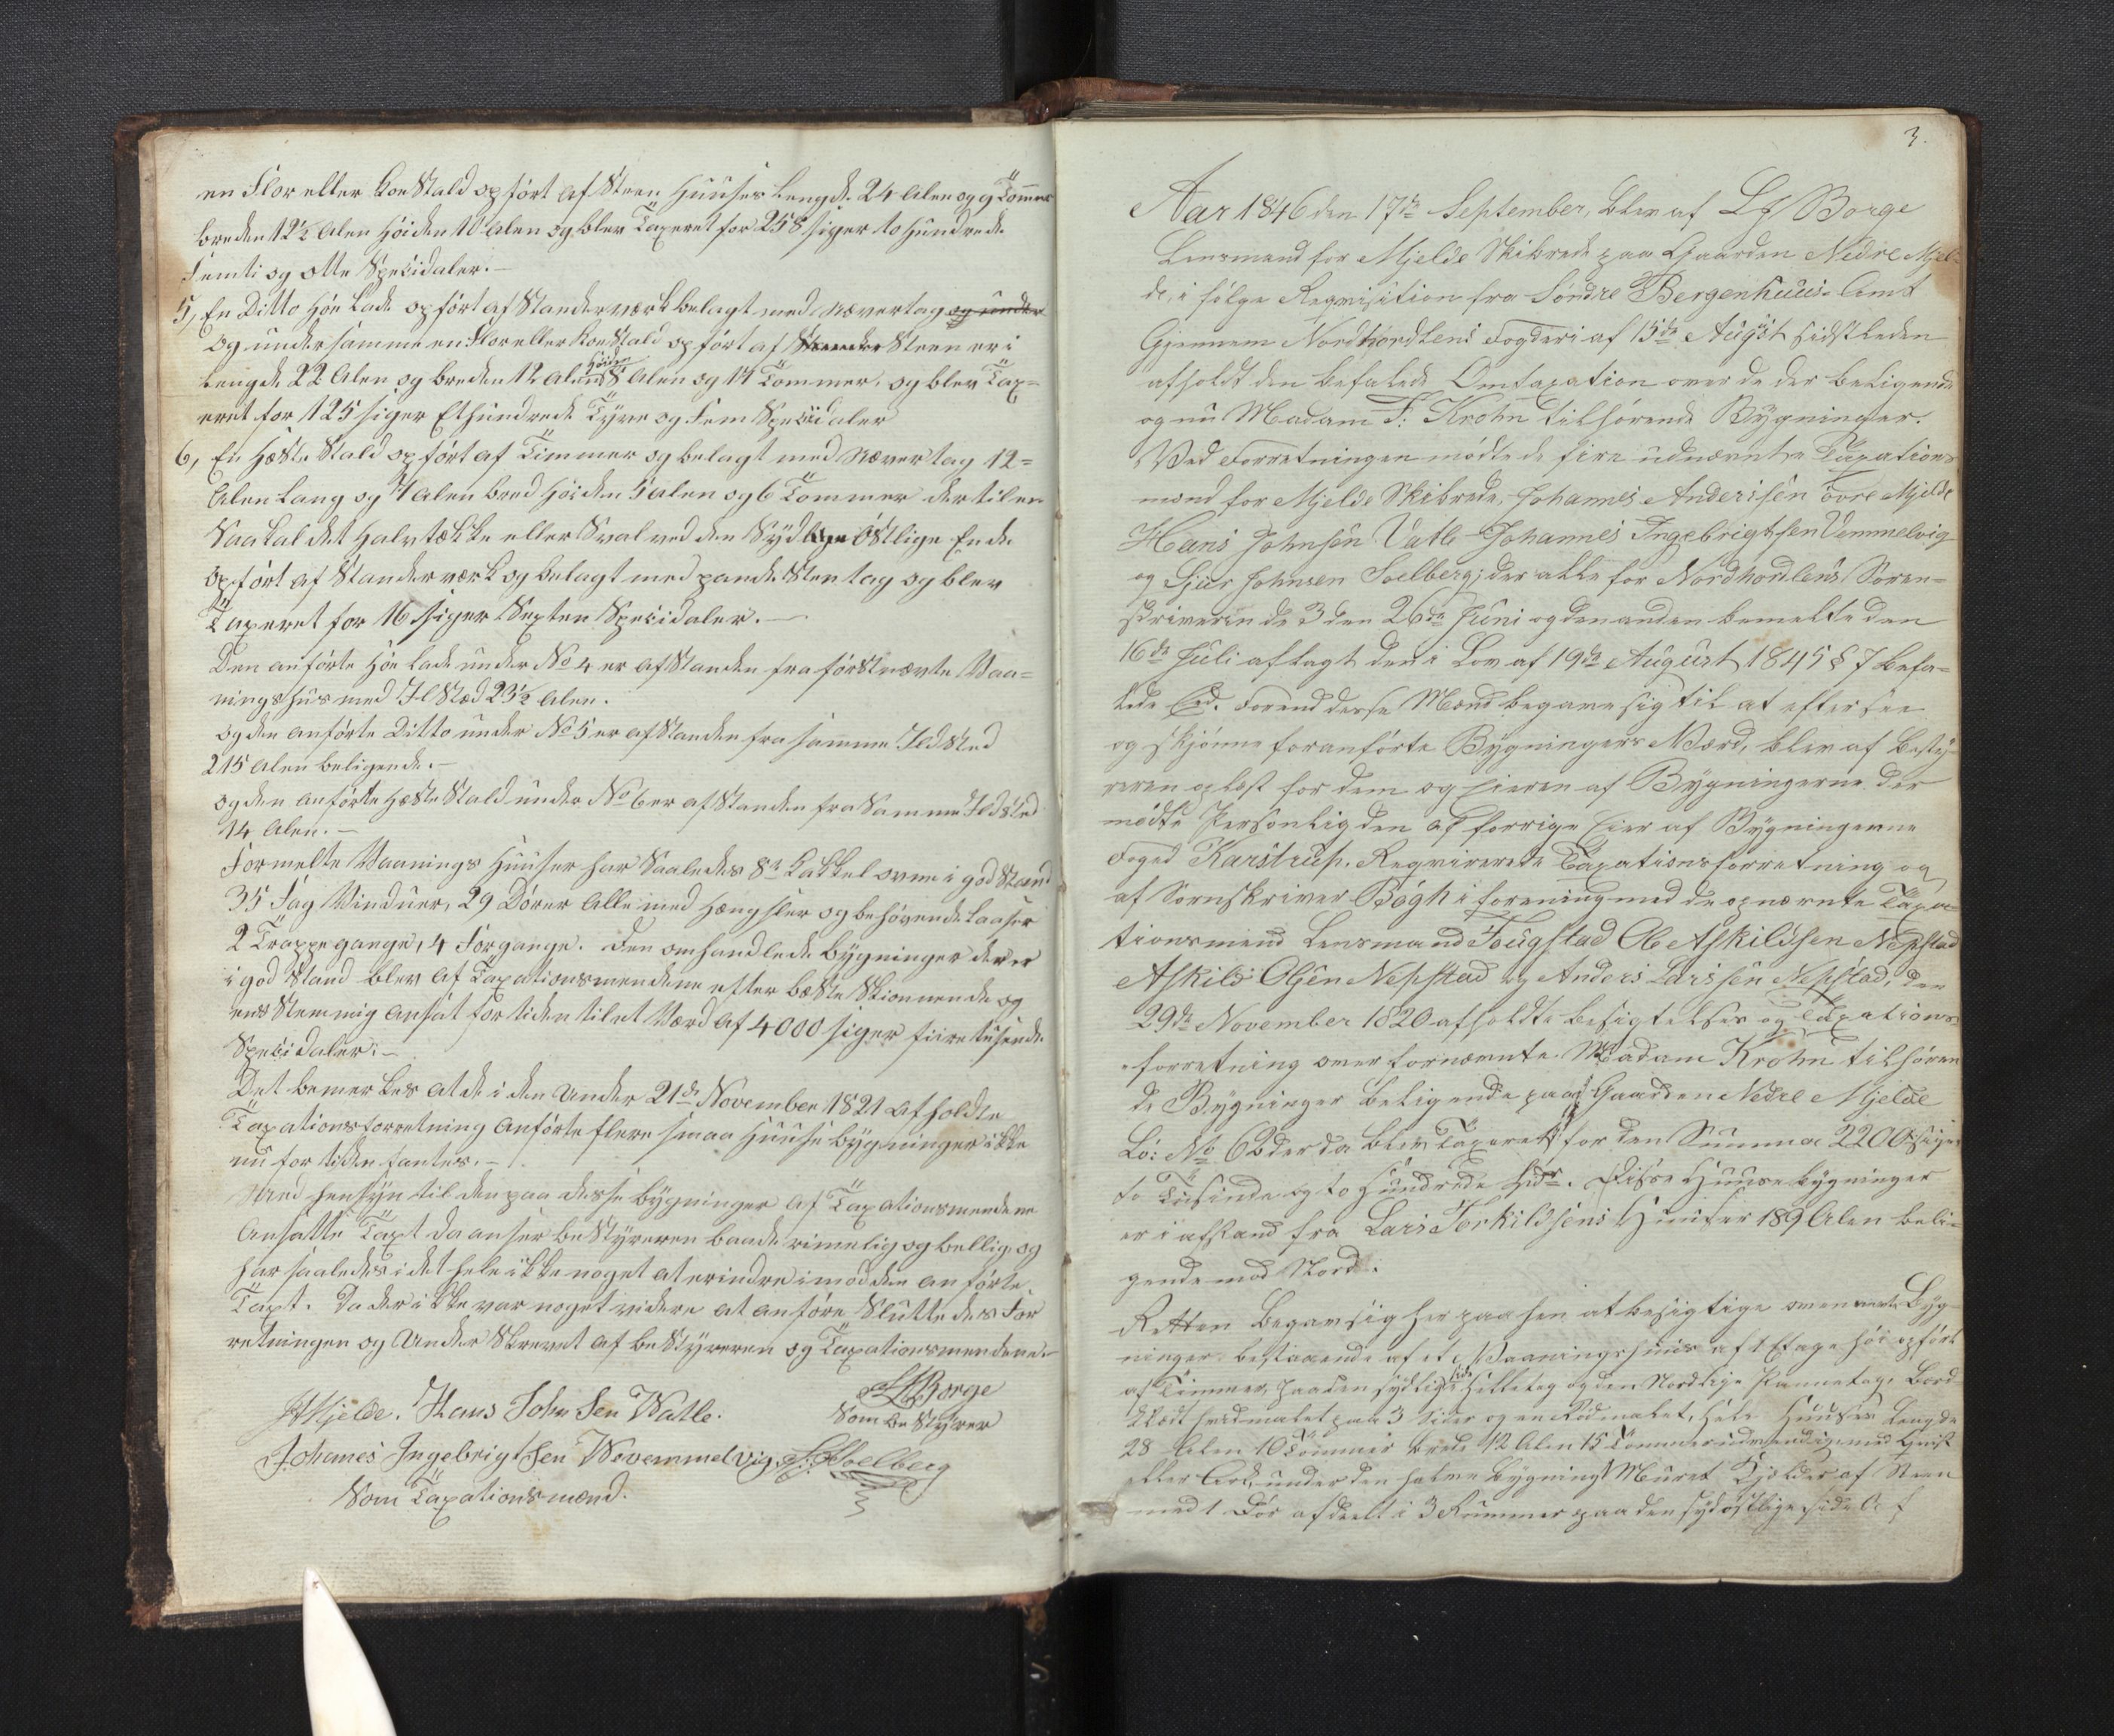 en Flor eller Koe Stald opført af Steen Huuses Lengde 24 Alen og 9 Tommer
breden 12½ Alen Høiden 10 Alen og blev Taxeret for 258 siger to Hundrede
Femti og otte Specidaler.–
5, En Ditto Høe Lade opført af Standerværk belagt med Nævertag og under
og under samme en Flor eller Koe Stald opført af Steen er i
Lengde 22 Alen og breden 12 Alen Høiden 8 Alen og 14 Tommer. og blev Tax=
eret for 125 siger Ethundrede Tyve og Fem Specidaler
6, En Hæste Stald opført af Timmer og belagt med Nævertag 12=
Alen Lang og 7 Alen bred Høiden 5 Alen og 6 Tommer dertil en
Saakaldet Halvtække eller Sval ved den Syd Østlige Ende
opført af Standerværk og belagt med pande Steen tag og blev
Taxeret for 16 siger Sexten Specidaler.–
Den anførte Høe Lade under No 4 er afstanden fra førstnævnte Vaa=
ningshus med Ildsted 23½ Alen.
og den anførte Ditto under No 5 er afstanden fra samme Ildsted
215 Alen beligende.–
og den anførte Hæste Stald under No 6 er afstanden fra Samme Ildsted
14 Alen.–
Formelte Vaanings Huuser har Saaledes 8te Kakkelovne i god Stand
35 Fag Vinduer, 29 Dører Alle med Hængsler og behøvende Laaser
2 Trappegange, 4 Forgange. Den omhandlede bygninger der er
i god Stand blev af Taxationsmendene efter bæste Skionnende og
eens Stemmig ansat for tiden til et Værd af 4000 siger fiire tusende
Specidaler.–
Det bemerkes at de i den under 21de November 1821 afholdte
Taxationsforretning Anførte flere smaa Huuse bygninger ikke
nu for tiden fantes.–
Med hensyn til den paa desse bygninger af Taxationsmendene
Ansatte Taxt da anser bestyreren baade rimelig og bellig og
har saaledes i det hele ikke noget at erindre imod den anførte
Taxt. Da der ikke var noget videre at anføre Sluttedes For
retningen og Under Skrevet af bestyreren og Taxationsmendene.
LJBorge
Som bestyrer
Mjelde. Hans John Sen Watle.
Johanes Ingebrigt Sen Wovemmelvig Soelberg
Som Taxationsmænd.
3.
Aar 1846 den 17de September, blev af LJ Borge
Lensmand for Mjelde Skibrede paa Gaarden Nedre Mjel=
de, i følge Reqvisition fra Søndre Bergenhuus Amt
Gjennem Nordhordlens Fogderi af 15de August sidstleden
afholdt den befalede Omtaxation over de der beligende
og nu Madam F: Krohn tilhørende Bygninger.
Ved Forretningen mødte de fire udnævnte Taxations
mænd for Mjelde Skibrede, Johannes Anderisen øvre Mjelde
Hans Johnsen Vatle Johannes Ingebrightsen Vemmelvig
og Gier Johnsen Soelberg; der alle for Nordhordlens Soren=
skriveren de 3 den 26de Juni og den anden bemelte den
16de Juli aflagt den i Lov af 19de August 1845 § 7 befa=
lede Eed. Forend desse Mænd begave sig til at efter see
og skjønne foranførte Bygningers Værd, blev af besty=
reren oplest for dem og Eieren af Bygningerne der
mødte Personlig den af forrige Eier af Bygningerne
Foged Karstrup. Reqvirerede Taxationsforretning og
af Sornskriver Bøgh i forening med de opnævnte Taxa=
tionsmend Lensmand Fougstad Ole Askildsen Nepstad
Askild Olsen Nepstad og Anders Larssen Nepstad, den
29de November 1820 afholdte besigtelses og Taxations
forretning over fornævnte Madam Krohn tilhøren
de Bygninger beligende paa Gaarden Nedre Mjelde
Lø: No 62 der da blev Taxeret for den Summa 2200 siger
to Tusinde og to Hundrede Spdr. Disse Huuse bygninger
er i afstand fra Lars Torkildsens Huuser 189 Alen beli=
gende mod Nord.
Retten begav sig her paa hen at besigtige ovennævnte byg=
ninger bestaaende af et Vaaningshuus af 1 Etage høi opført
af Timmer, paa den sydlige Side Helletag og den Nordlige Pannetag. bord
klædt hvidmalet paa 3 Sider og en Rødmalet, hele Huuses Lengde
28 Alen 10 Tommer brede 12 Alen 15 Tommer udvendig med Qvist
eller Ark, under den halve bygning Muret Kjelder af Steen
med 1 Dør afdeelt i 3 Rummer paa den sydøstlige side Af